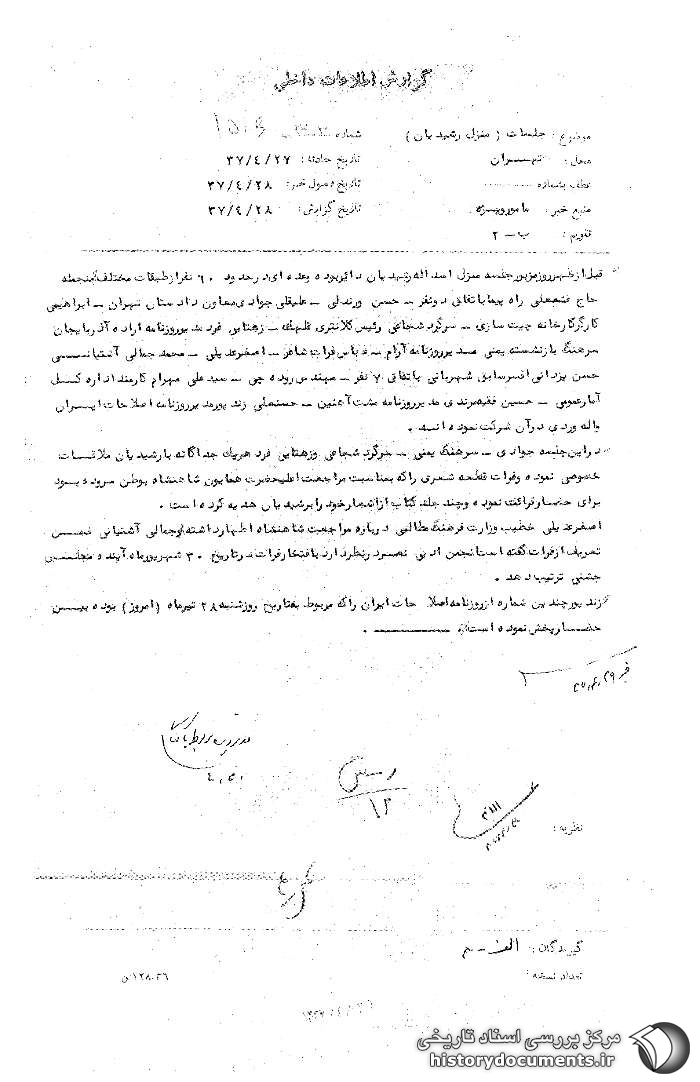 گزارش اطلاعات داخلی
موضوع : جلسات ( منزل رشیدیان )
شماره
محل : تهران
تاریخ حادثه : ۳۷/۴/۲۷
عطف بشماره ............
تاریخ وصول خبر : ۳۷/۴/۲۸
منبع خبر : مامور ویژه
تاریخ گزارش : ۳۷/۴/۲۸
تقویم : ب - ۲
قبل از ظهر روز مزبور جلسه منزل اسداله رشیدیان دائر بوده و عده ای در حدود ۶۰ نفر از طبقات مختلف منجمله
حاج فتحعلی راه پیما باتفاق دو نفر - حسن ورندلی - علیقلی جوادی معاون دادستان تهران - ابراهیمی
کارگر کارخانه چیت سازی - سرگرد شجاعی رئیس کلانتری قلهک - زهتابی فرد مدیر روزنامه اراده آذربایجان
سرهنگ بازنشسته یمنی مدیر روزنامه آرام - عباس فرات شاعر - اصغر عدیلی - محمد جمالی آشتیانی
حسن یزدانی افسر سابق شهربانی باتفاق ۷ نفر - مهندس روده چی - سید علی مهرام کارمند اداره کل
آمار عمومی - حسین فقیه مرندی مدیر روزنامه مشت آهنین - حسنعلی زند پور مدیر روزنامه اصلاحات ایران
واله وردی در آن شرکت نموده اند .
در این جلسه جوادی - سرهنگ یمنی - سرگرد شجاعی و زهتابی فرد هریک جداگانه با رشیدیان ملاقات
خصوصی نموده و فرات قطعه شعری را که بمناسبت مراجعت اعلیحضرت همایون شاهنشاه بوطن سروده بود
برای حضار قرائت نموده و چند جلد کتاب از اشعار خود را برشیدیان هدیه کرده است .
اصغر عدیلی خطیب وزارت فرهنگ مطالبی درباره مراجعت شاهنشاه اظهار داشته و جمالی آشتیانی ضمن
تعریف از فرات گفته است انجمن ادبی نصر در نظر دارد بافتخار فرات در تاریخ ۳۰ شهریور ماه آینده مجلس
جشنی ترتیب دهد .
زند پور چندین شماره از روزنامه اصلاحات ایران را که مربوط بتاریخ روز شنبه ۲۸ تیرماه (امروز) بوده بین
حضار پخش نموده است .
۱۲
نظریه :
گیرندگان : الف - م
تعداد نسخه :
۱۲۸۰۳۶
مرکز بررسی اسناد تاریخی
historydocuments.ir